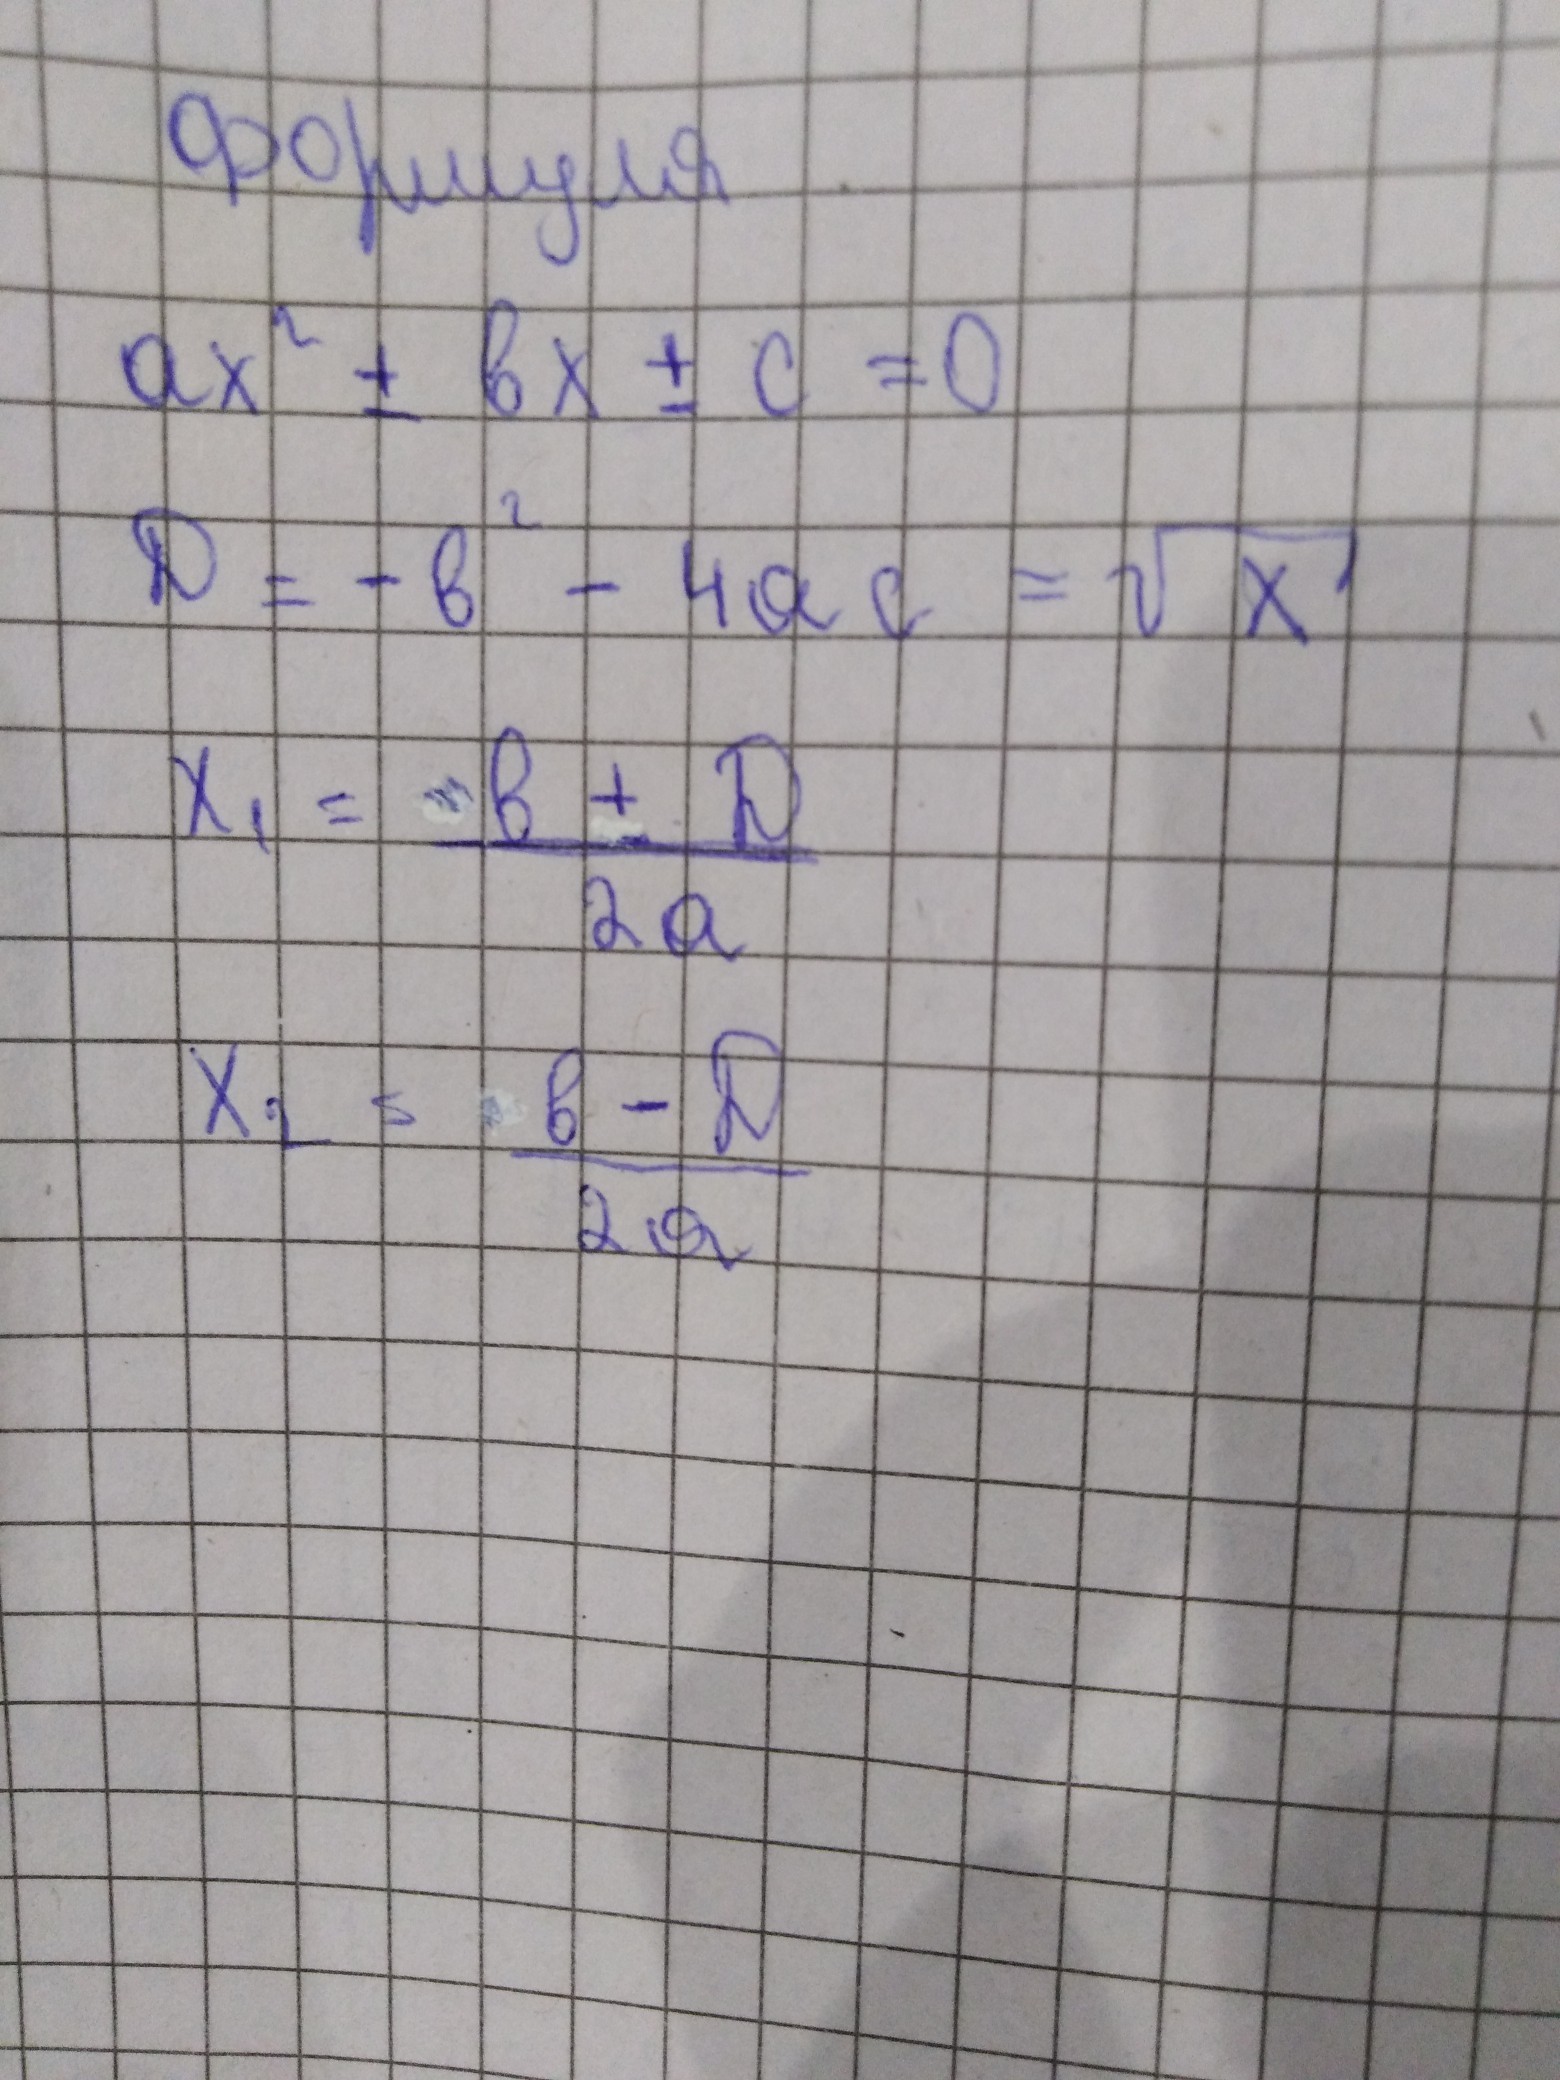 Формуля
ax² ± bx ± c = 0
D = -b² - 4ac = √x
x₁ = -b ± D
2a
x₂ = -b - D
2a